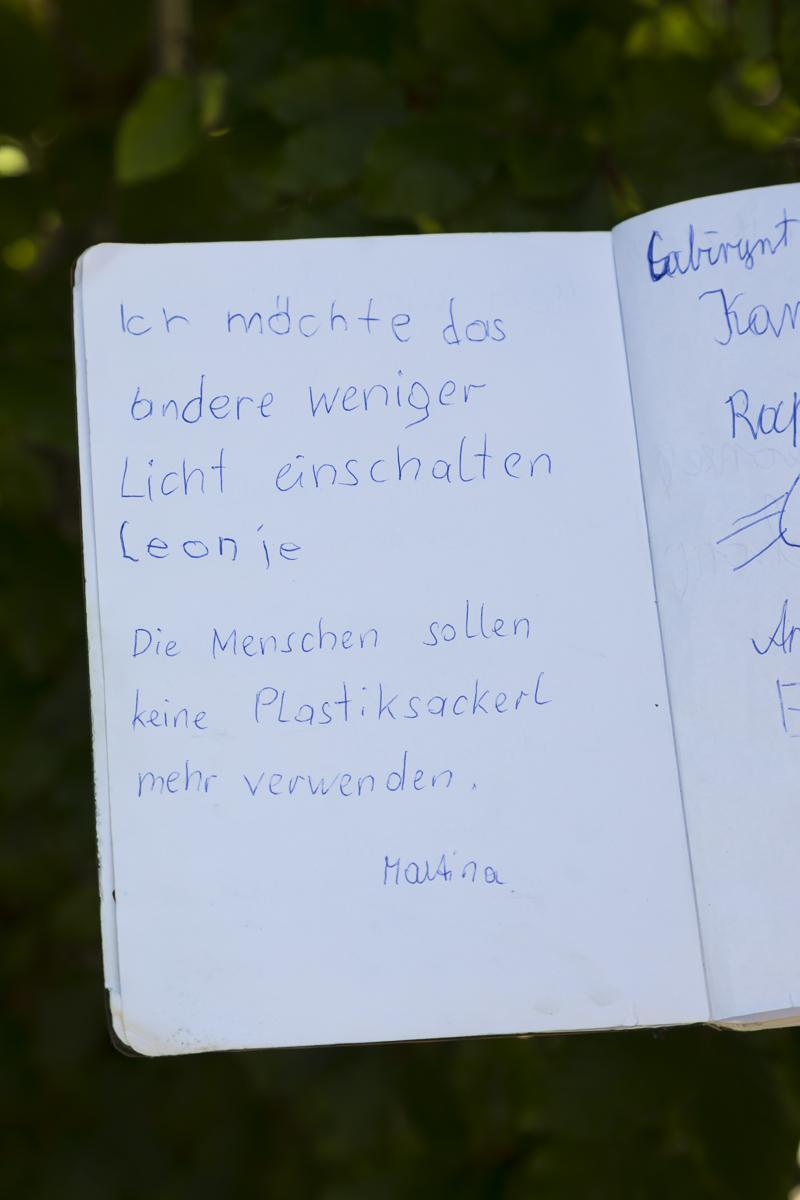 Ich möchte das
andere weniger
Licht einschalten
Leonie
Die Menschen sollen
keine Plastiksackerl
mehr verwenden.
Martina